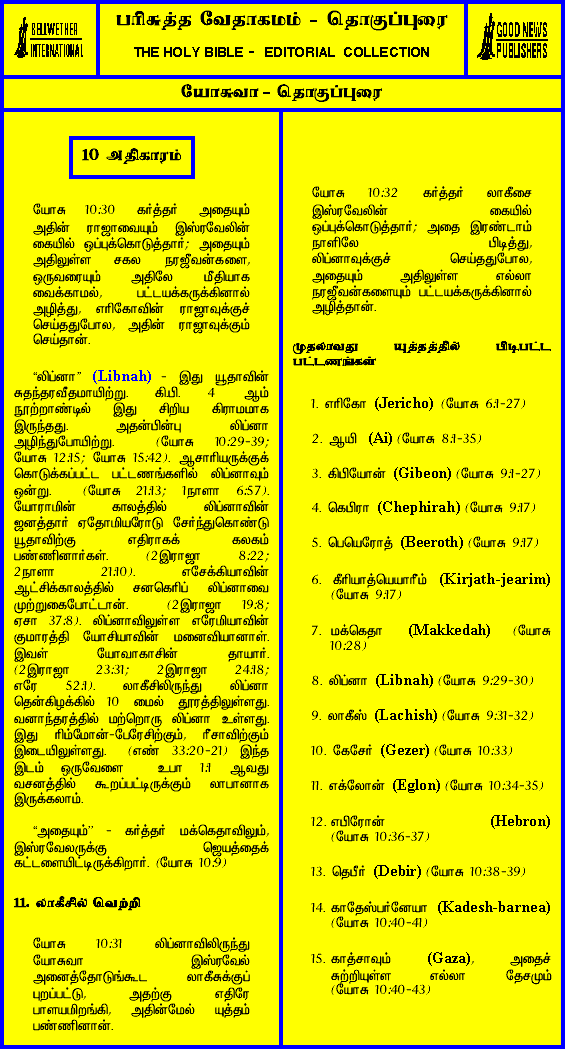 BELLWETHER
INTERNATIONAL
பரிசுத்த வேதாகமம் - தொகுப்புரை
THE HOLY BIBLE - EDITORIAL COLLECTION
GOOD NEWS
PUBLISHERS
யோசுவா - தொகுப்புரை
10 அதிகாரம்
யோசு 10:30 கர்த்தர் அதையும்
அதின் ராஜாவையும் இஸ்ரவேலின்
கையில் ஒப்புக்கொடுத்தார்; அதையும்
அதிலுள்ள சகல நரஜீவன்களை,
ஒருவரையும் அதிலே மீதியாக
வைக்காமல், பட்டயக்கருக்கினால்
அழித்து, எரிகோவின் ராஜாவுக்குச்
செய்ததுபோல, அதின் ராஜாவுக்கும்
செய்தான்.
“லிப்னா” (Libnah) - இது யூதாவின்
சுதந்தரவீதமாயிற்று. கி.பி. 4 ஆம்
நூற்றாண்டில் இது சிறிய கிராமமாக
இருந்தது. அதன்பின்பு லிப்னா
அழிந்துபோயிற்று. (யோசு 10:29-39;
யோசு 12:15; யோசு 15:42). ஆசாரியருக்குக்
கொடுக்கப்பட்ட பட்டணங்களில் லிப்னாவும்
ஒன்று. (யோசு 21:13; 1நாளா 6:57).
யோராமின் காலத்தில் லிப்னாவின்
ஜனத்தார் ஏதோமியரோடு சேர்ந்துகொண்டு
யூதாவிற்கு எதிராகக் கலகம்
பண்ணினார்கள். (2இராஜா 8:22;
2நாளா 21:10). எசேக்கியாவின்
ஆட்சிக்காலத்தில் சனகெரிப் லிப்னாவை
முற்றுகைபோட்டான். (2இராஜா 19:8;
ஏசா 37:8). லிப்னாவிலுள்ள எரேமியாவின்
குமாரத்தி யோசியாவின் மனைவியானாள்.
இவள் யோவாகாசின் தாயார்.
(2இராஜா 23:31; 2இராஜா 24:18;
எரே 52:1). லாகீசிலிருந்து லிப்னா
தென்கிழக்கில் 10 மைல் தூரத்திலுள்ளது.
வனாந்தரத்தில் மற்றொரு லிப்னா உள்ளது.
இது ரிம்மோன்-பேரேசிற்கும், ரீசாவிற்கும்
இடையிலுள்ளது. (எண் 33:20-21) இந்த
இடம் ஒருவேளை உபா 1:1 ஆவது
வசனத்தில் கூறப்பட்டிருக்கும் லாபானாக
இருக்கலாம்.
“அதையும்” - கர்த்தர் மக்கெதாவிலும்,
இஸ்ரவேலருக்கு ஜெயத்தைக்
கட்டளையிட்டிருக்கிறார். (யோசு 10:9)
11. லாகீசில் வெற்றி
யோசு 10:31 லிப்னாவிலிருந்து
யோசுவா இஸ்ரவேல்
அனைத்தோடுங்கூட லாகீசுக்குப்
புறப்பட்டு, அதற்கு எதிரே
பாளயமிறங்கி, அதின்மேல் யுத்தம்
பண்ணினான்.
யோசு 10:32 கர்த்தர் லாகீசை
இஸ்ரவேலின் கையில்
ஒப்புக்கொடுத்தார்; அதை இரண்டாம்
நாளிலே பிடித்து,
லிப்னாவுக்குச் செய்ததுபோல,
அதையும் அதிலுள்ள எல்லா
நரஜீவன்களையும் பட்டயக்கருக்கினால்
அழித்தான்.
முதலாவது யுத்தத்தில் பிடிபட்ட
பட்டணங்கள்
1. எரிகோ (Jericho) (யோசு 6:1-27)
2. ஆயி (Ai) (யோசு 8:1-35)
3. கிபியோன் (Gibeon) (யோசு 9:1-27)
4. கெபிரா (Chephirah) (யோசு 9:17)
5. பெயெரோத் (Beeroth) (யோசு 9:17)
6. கீரியாத்யெயாரீம் (Kirjath-jearim)
(யோசு 9:17)
7. மக்கெதா (Makkedah) (யோசு
10:28)
8. லிப்னா (Libnah) (யோசு 9:29-30)
9. லாகீஸ் (Lachish) (யோசு 9:31-32)
10. கேசேர் (Gezer) (யோசு 10:33)
11. எக்லோன் (Eglon) (யோசு 10:34-35)
12. எபிரோன் (Hebron)
(யோசு 10:36-37)
13. தெபீர் (Debir) (யோசு 10:38-39)
14. காதேஸ்பர்னேயா (Kadesh-barnea)
(யோசு 10:40-41)
15. காத்சாவும் (Gaza), அதைச்
சுற்றியுள்ள எல்லா தேசமும்
(யோசு 10:40-43)